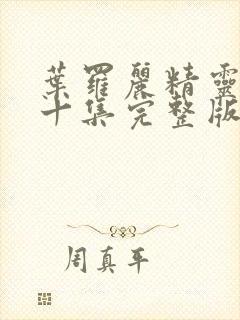 葉羅麗精靈
十集完整版
周真平